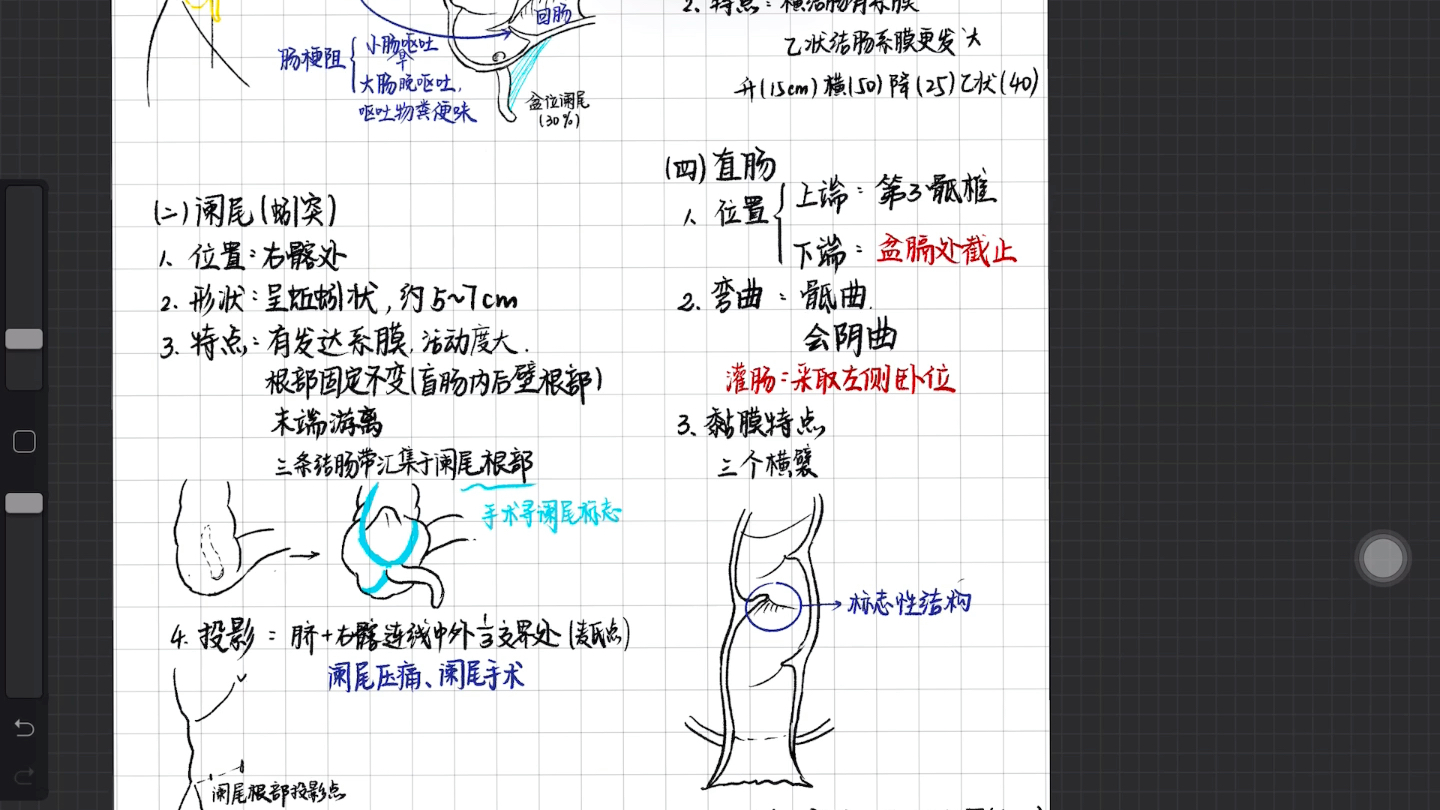 回肠
肠梗阻
小肠呕吐
早
大肠晚呕吐,
呕吐物粪便味
盆位阑尾
(30%)
(二)阑尾(蚓突)
1、位置:右髂处
2. 形状:呈蚯蚓状,约5~7cm
3. 特点:有发达系膜,活动度大.
根部固定不变(盲肠内后壁根部)
末端游离
三条结肠带汇集于阑尾根部
手术寻阑尾标志
4. 投影:脐+右髂连线中外1/3交界处(麦氏点)
阑尾压痛、阑尾手术
阑尾根部投影点
2. 特点:横结肠有系膜
乙状结肠系膜更发达
升(15cm)横(50)降(25)乙状(40)
(四)直肠
1、位置
上端:第3骶椎
下端:盆膈处截止
2. 弯曲:骶曲.
会阴曲
灌肠:采取左侧卧位
3、黏膜特点
三个横襞
标志性结构